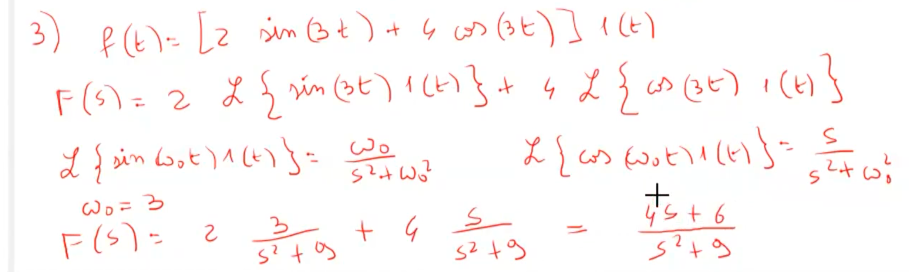 3) f(t) = [2 sin(3t) + 4 cos(3t)] 1(t)
F(s) = 2 ℒ{sin(3t) 1(t)} + 4 ℒ{cos(3t) 1(t)}
ℒ{sin(ω₀t) 1(t)} = ω₀/(s² + ω₀²)    ℒ{cos(ω₀t) 1(t)} = s/(s² + ω₀²)
ω₀ = 3
F(s) = 2 3/(s² + 9) + 4 s/(s² + 9) = (4s + 6)/(s² + 9)